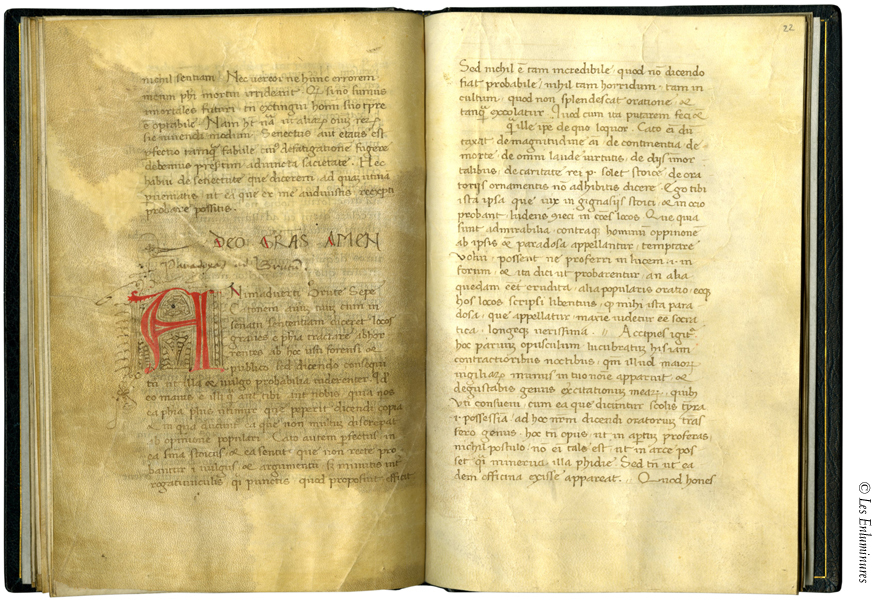 nichil sentiam Nec vereor ne hunc errorem
meum phi mortui irrideant Q si no sumus
imortales futuri tn extingui homi suo tpre
e optabile Nam ht na ut aliaz oiu rerz
sic uiuendi modum Senectus aut etatis est
pfectio tamq fabule cui defatigatione fugere
debemus presertim adiuncta sacietate Hec
habui de senectute que dicerem ad qua utina
pueniatis ut ea que ex me audiuistis re experti
probare possitis
DEO GRAS AMEN
Paradoxa ad Brutu
ANimaduerti Brute Sepe
Catonem auu tuu cum in
senatu sententiam diceret locos
graues e phia tractare abhor
rentes ab hoc usu forensi &
publico sed dicendo consequi
tn ut illa & uulgo probabilia uiderentur Id
eo maius e illi q aut tibi aut nobis quia nos
ea phia plus utimur que peperit dicendi copia
& in qua dicutur ea que non multu discrepat
ab opinione populari Cato autem pfectus in
ea sma stoicus & ea sentit que non recte pro
bantur i uulgus & argumentu & minutis int
rogatiunculis qi punctis quod proposuit efficit
22
Sed nichil e tam incredibile quod no dicendo
fiat probabile nihil tam horridum tam in
cultum quod non splendescat oratione &
tanq excolatur Quod cum ita putarem feci &
q ille ipe de quo loquor Cato ei du
taxat de magnitudine ai de continentia de
morte de omni laude uirtutis de dijs imor
talibus de caritate rei p solet stoice de ora
torijs ornamentis no adhibitis dicere Ego tibi
ista ipsa que uix in gignasijs stoici & in ocio
probant ludens gieci in coes locos Que quia
sunt admirabilia contraq hominu oppinione
ab ipsis & paradosa appellantur temptare
volui possent ne proferri in lucem i in
forum & ita dici ut probarentur an alia
quedam eet erudita alia popularis oratio eoq
hos locos scripsi libentius q mihi ista para
dosa que appellatur maxie uidetur ee socra
tica longeq verissima Accipies igit
hoc paruu opusculum lucubratu his iam
contractioribus noctibus qm illud maiorz
uigiliarz munus in tuo noie apparuit &
degustabis genus excitationuz mearz quib
vti consueui cum ea que dicuntur scolis
i possessia ad hoc nrm dicendi oratoriuz tras
fero genus hoc tn opus ut in aptuz proferas
nichil postulo no ei tale est ut in arce pos
set qi minerua illa phidie Sed tn ut ea
dem officina exisse appareat Quod hones
© Les Enluminures